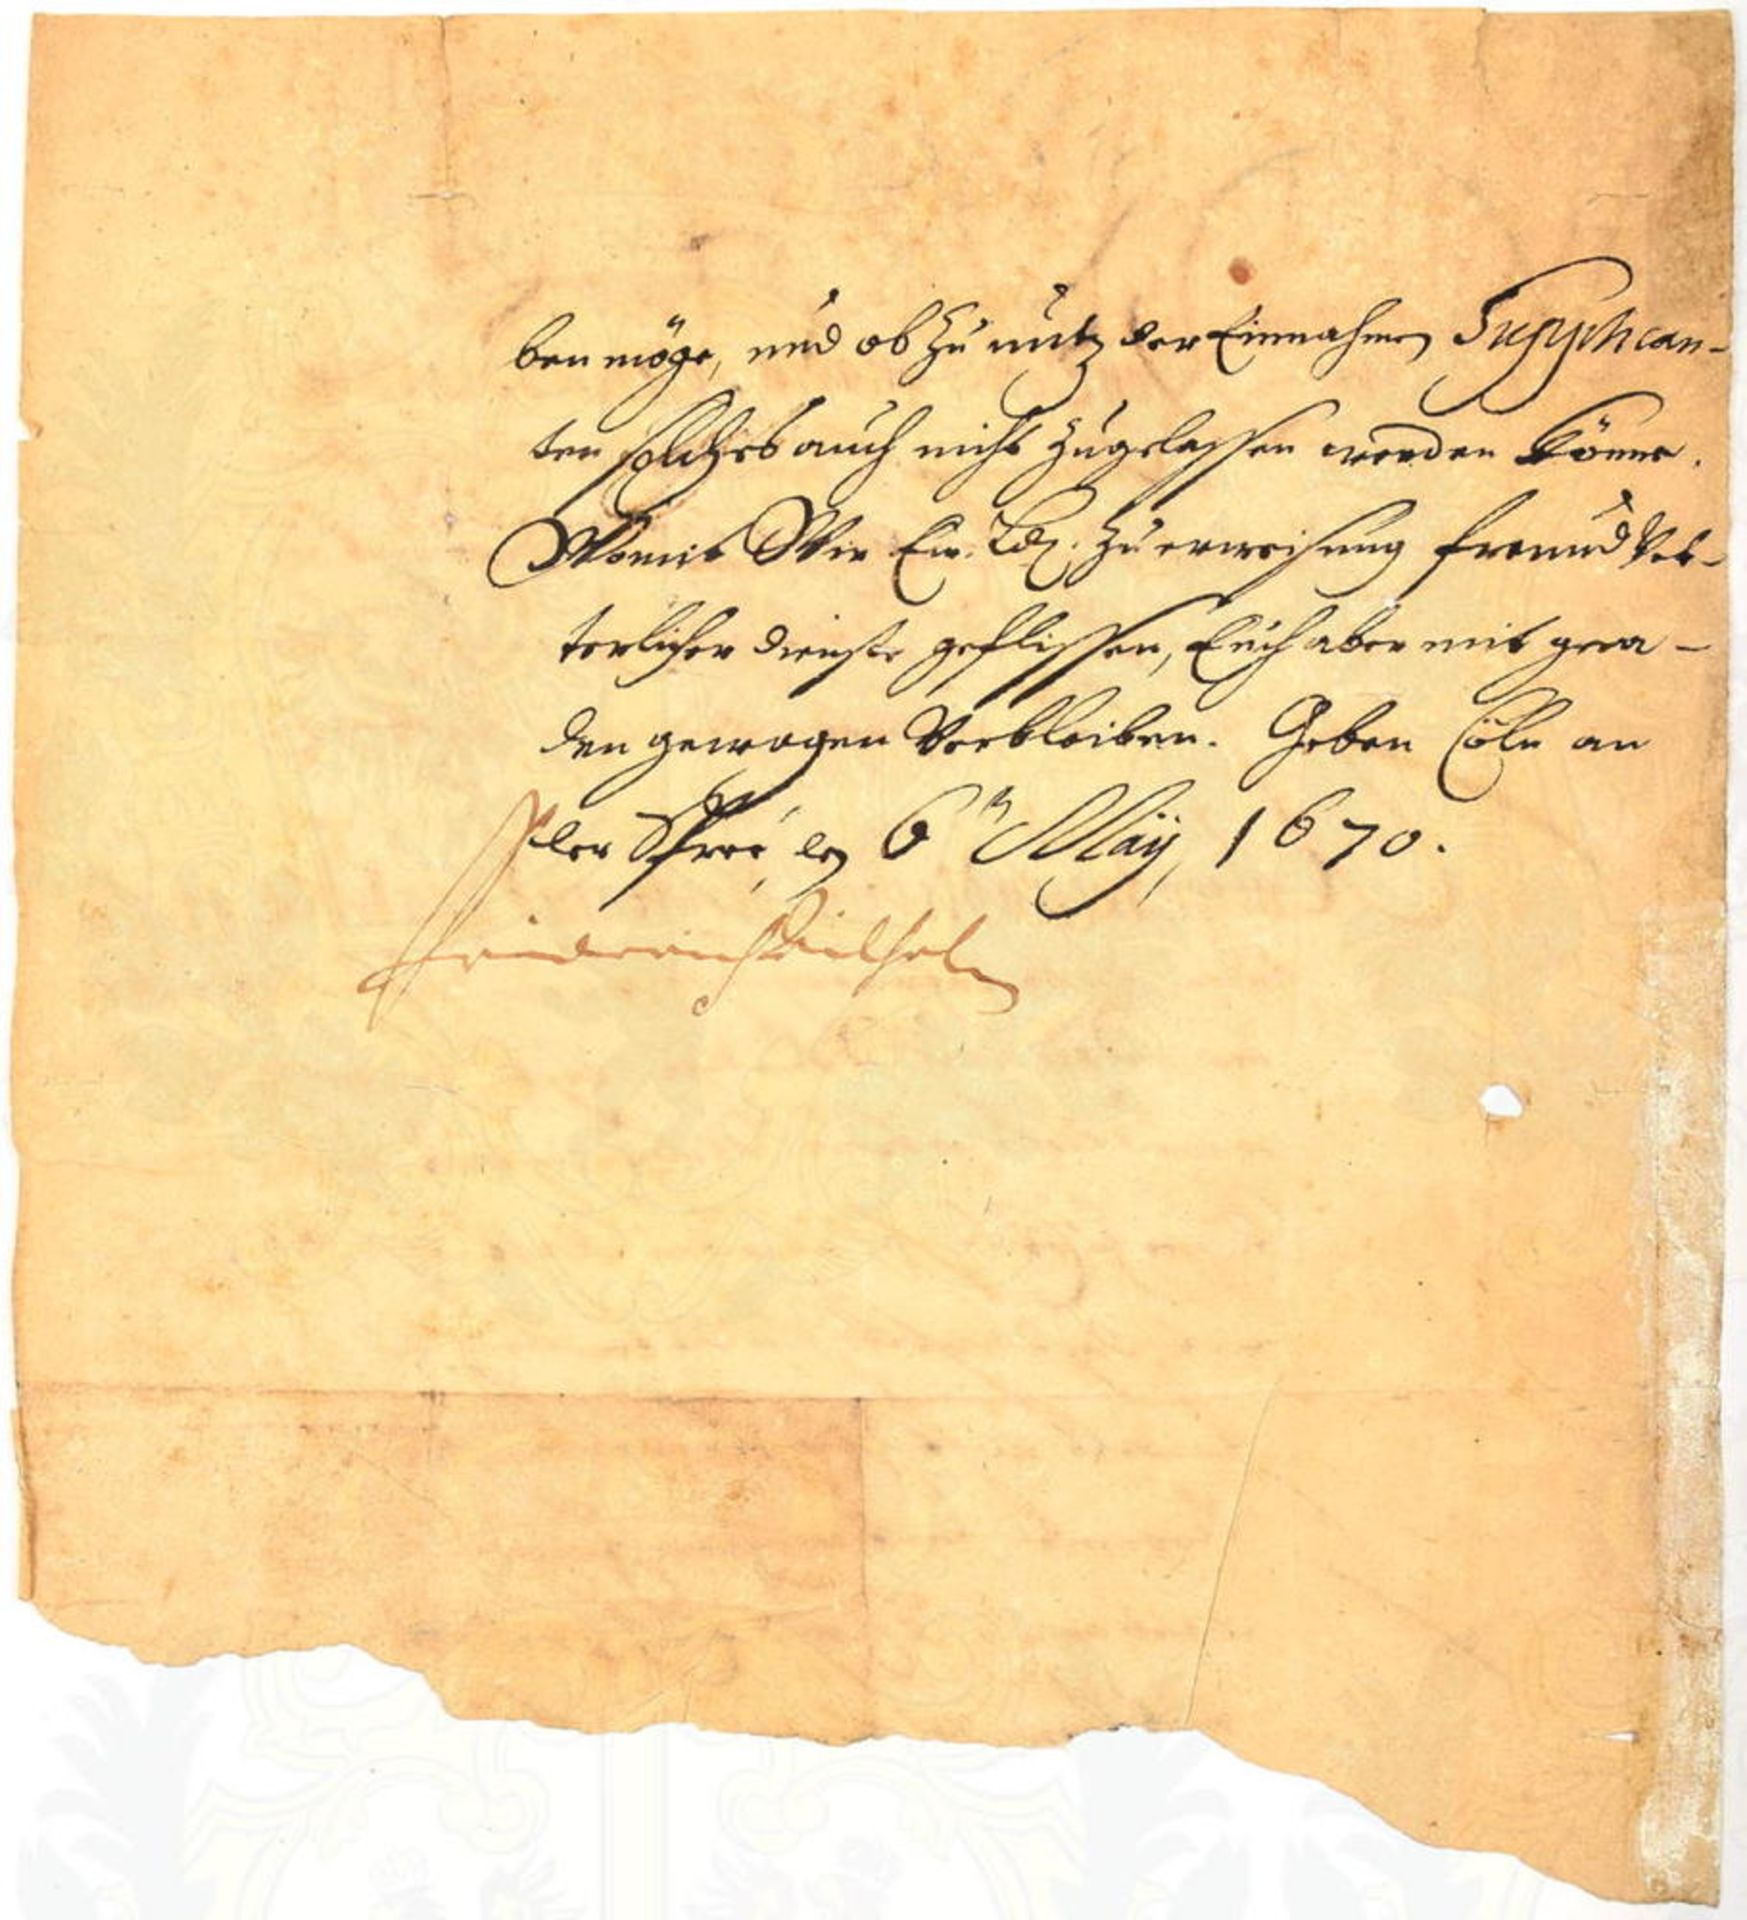 ben möge, und ob zu nutz der Einnahme Supplican-
ten solches auch nicht zugelassen werden könne.
Womit Wir Ew. Ld. zu erweisung freund Vet-
terlicher dienste geflissen, Euch aber mit gna-
den gewogen Verbleiben. Geben Cölln an
der Spree, den 6n Maÿ, 1670.
Friderich Wilhelm